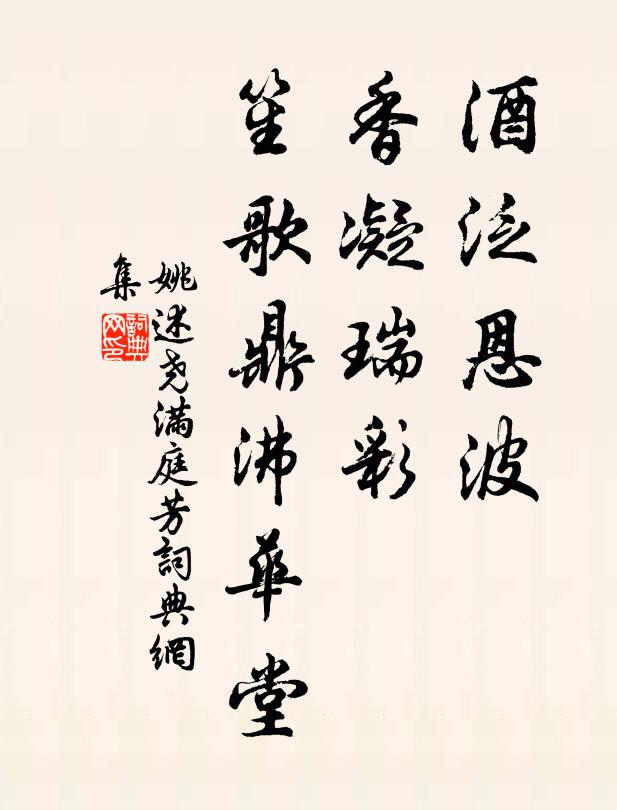 酒泛恩波
香凝瑞彩
笙歌鼎沸華堂
姚述尧满庭芳詞典網
集
詞典网印